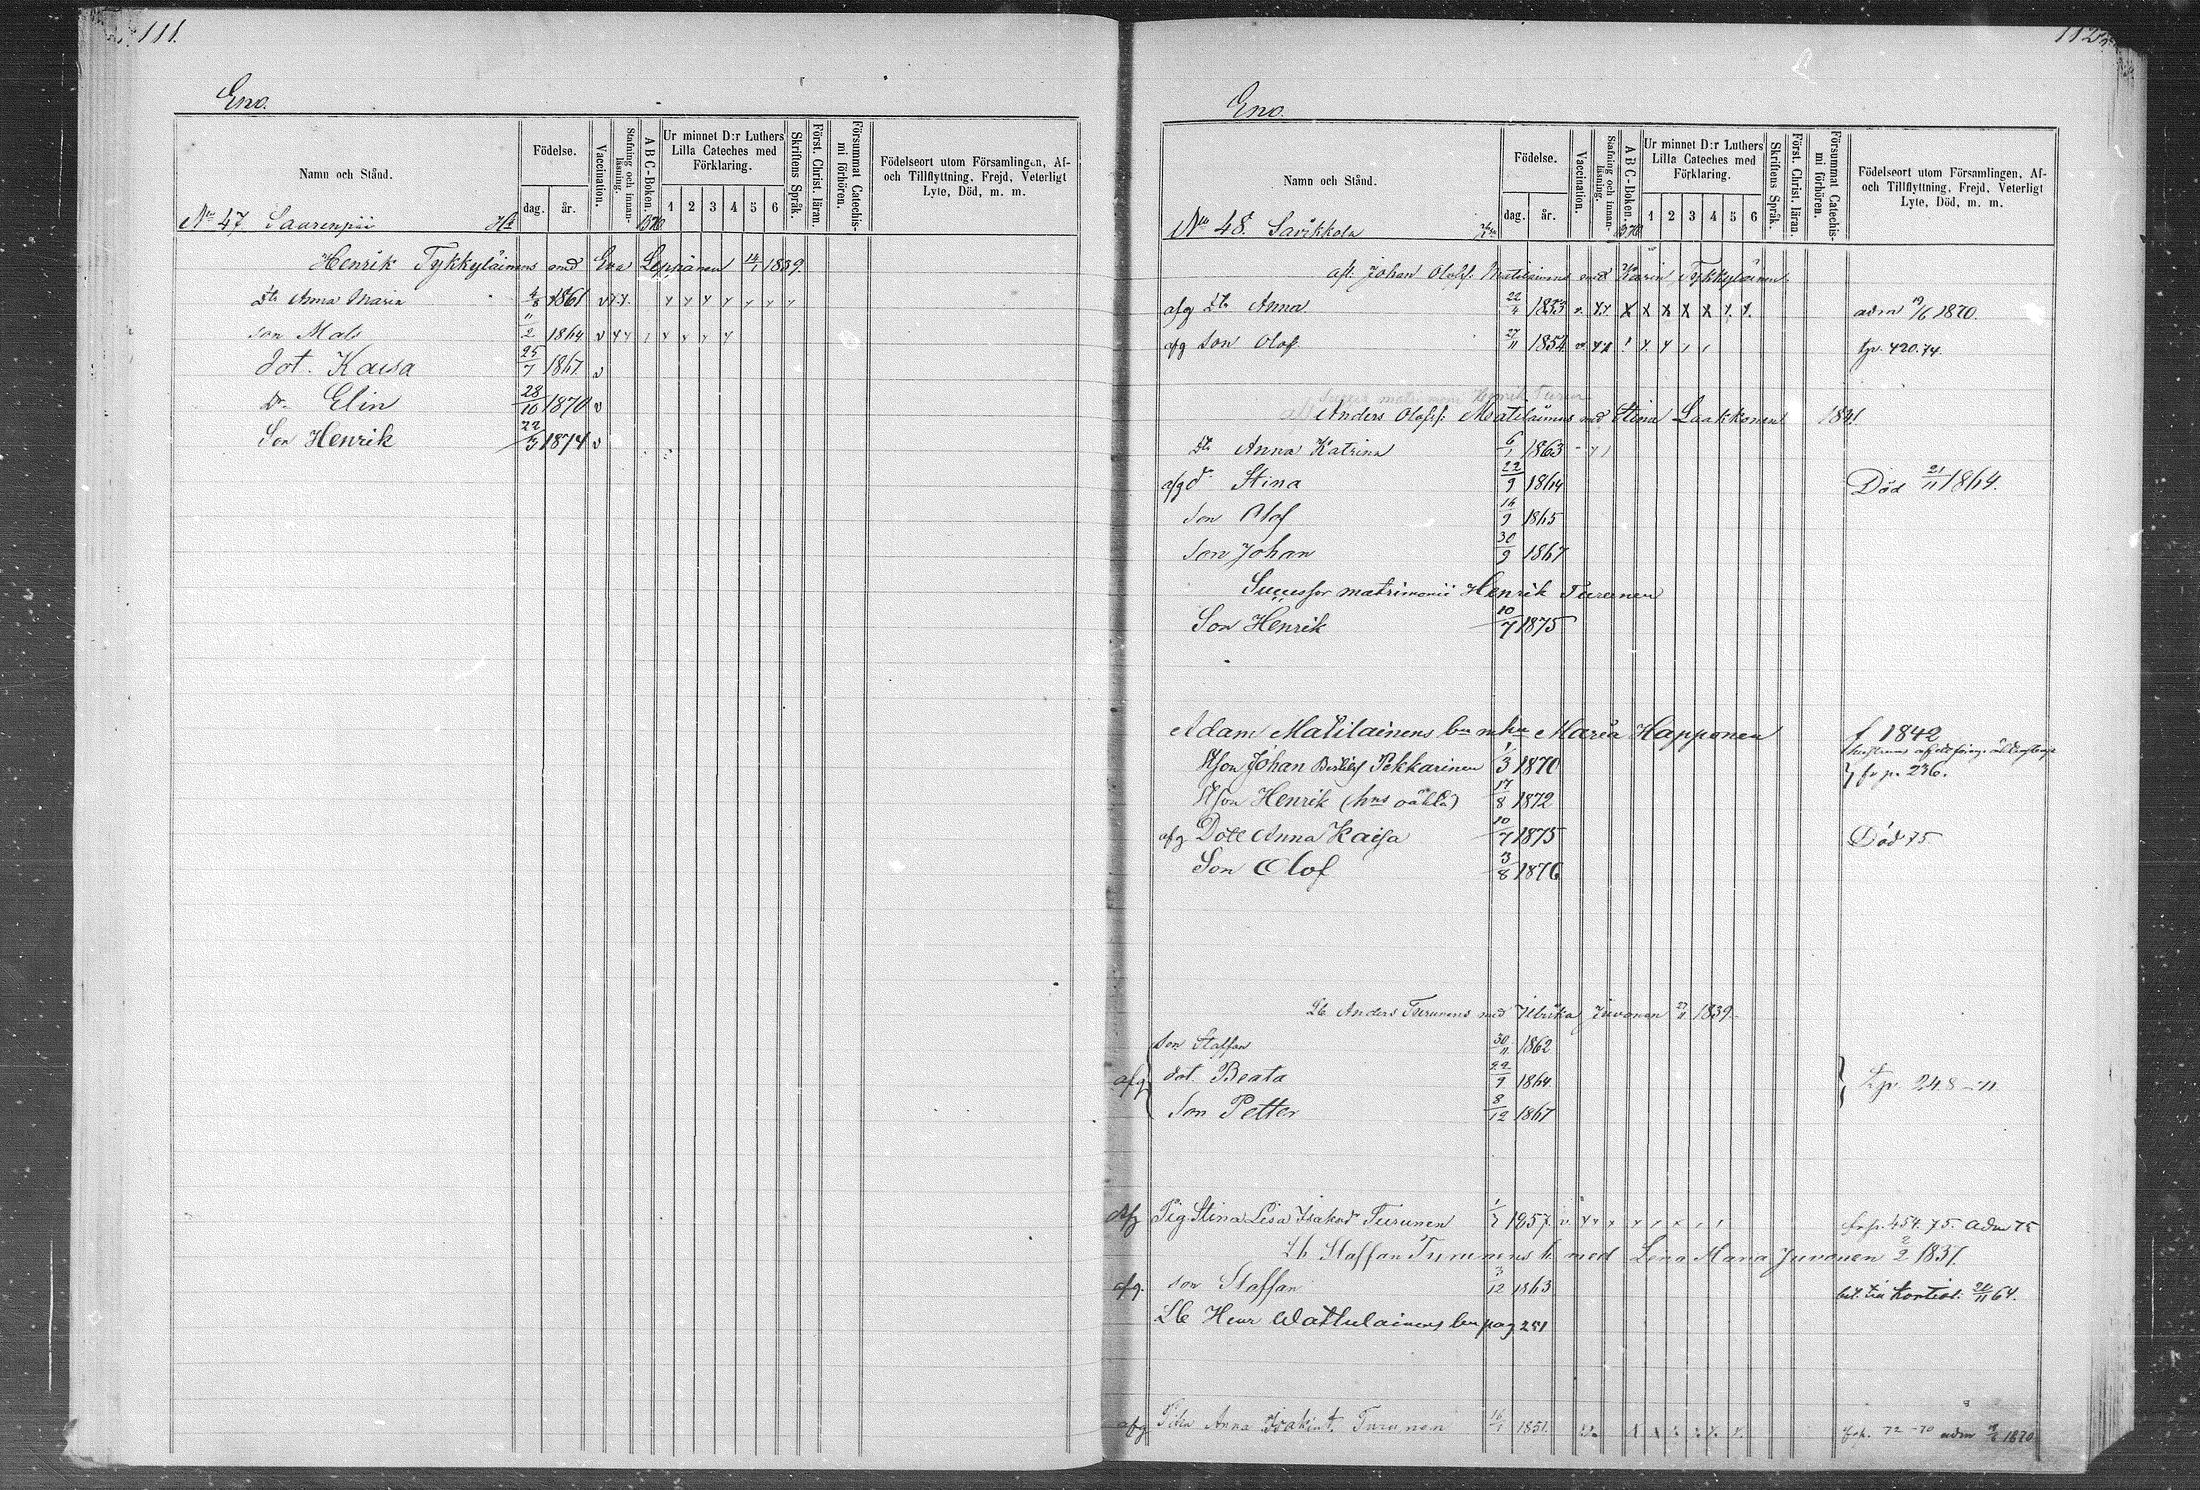 111.
Eno.
Namn och Stånd.
Födelse.
dag.
år.
Vaccination.
Stafning och innanläsning.
A B C-Boken.
Ur minnet D:r Luthers
Lilla Cateches med
Förklaring.
1 2 3 4 5 6
Skriftens Språk.
Först. Christ. läran.
Försummat Catechismi förhören.
Födelseort utom Församlingen, Af-
och Tillflyttning, Frejd, Veterligt
Lyte, Död, m. m.
No 47 Saarenpää
Henrik Tykkyläinens med Eva Leppänen 1839.
Dtr Anna Maria 4/8 1861
son Mats 11/2 1864
dot. Kaisa 25/7 1867
Dr. Elin 28/10 1870
Son Henrik 22/3 1874
112
Eno.
Namn och Stånd.
Födelse.
dag.
år.
Vaccination.
Stafning och innanläsning.
A B C-Boken.
Ur minnet D:r Luthers
Lilla Cateches med
Förklaring.
1 2 3 4 5 6
Skriftens Språk.
Först. Christ. läran.
Försummat Catechismi förhören.
Födelseort utom Församlingen, Af-
och Tillflyttning, Frejd, Veterligt
Lyte, Död, m. m.
No 48. Savikkola
afl. Johan Olofss. Matilainens med Karin Tykkyläinen
afg Dtr Anna 22/4 1853 adm 19/6 1870.
afg son Olof 27/11 1854 tp. 420. 74.
Anders Olofss. Matilainens med Stina Laakkonen 1841
Dtr Anna Katrina 6/1 1863
afg dr Stina 22/9 1864 Död 21/11 1864.
son Olof 16/9 1865
son Johan 30/9 1867
Successor matrimonii Henrik Turunen
Son Henrik 10/7 1875
Adam Matilainens Maria Happonen f 1842
Johan Pekkarinen 1/3 1870 fr p. 236.
Henrik 17/8 1872
afg Dott Anna Kaisa 10/7 1875 Död 75
Son Olof 3/8 1876
Lb Anders Turunens med Ulrika Juvonen 27/11 1839.
son Staffan 30/11 1862
afg dot. Beata 22/9 1864 tp. 248 - 71
Son Petter 8/12 1867
Afg Pig. Stina Lisa Isaksdr Turunen 1/7 1857 frp. 454. 75. adm 75
Lb Staffan Turunens h. med Lena Maria Juvonen 2/2 1831.
afg. son Staffan 3/12 1863 64.
Lb Henr Wattulainens pag 251
afg Anna Turunen 16/1 1851. 72 - 70 adm 1870